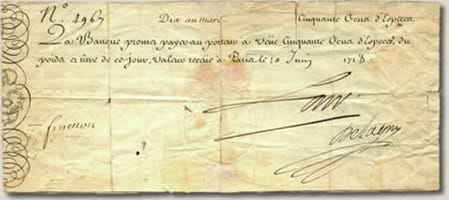 N.º 4967 Dix au marc Cinquante Ecus d'Especes
La Banque promet payer au porteur a vüe Cinquante Ecus d'Especes, du
poids et titre de ce jour, valeur reçüe a Paris le 10 Juin 1718
Law